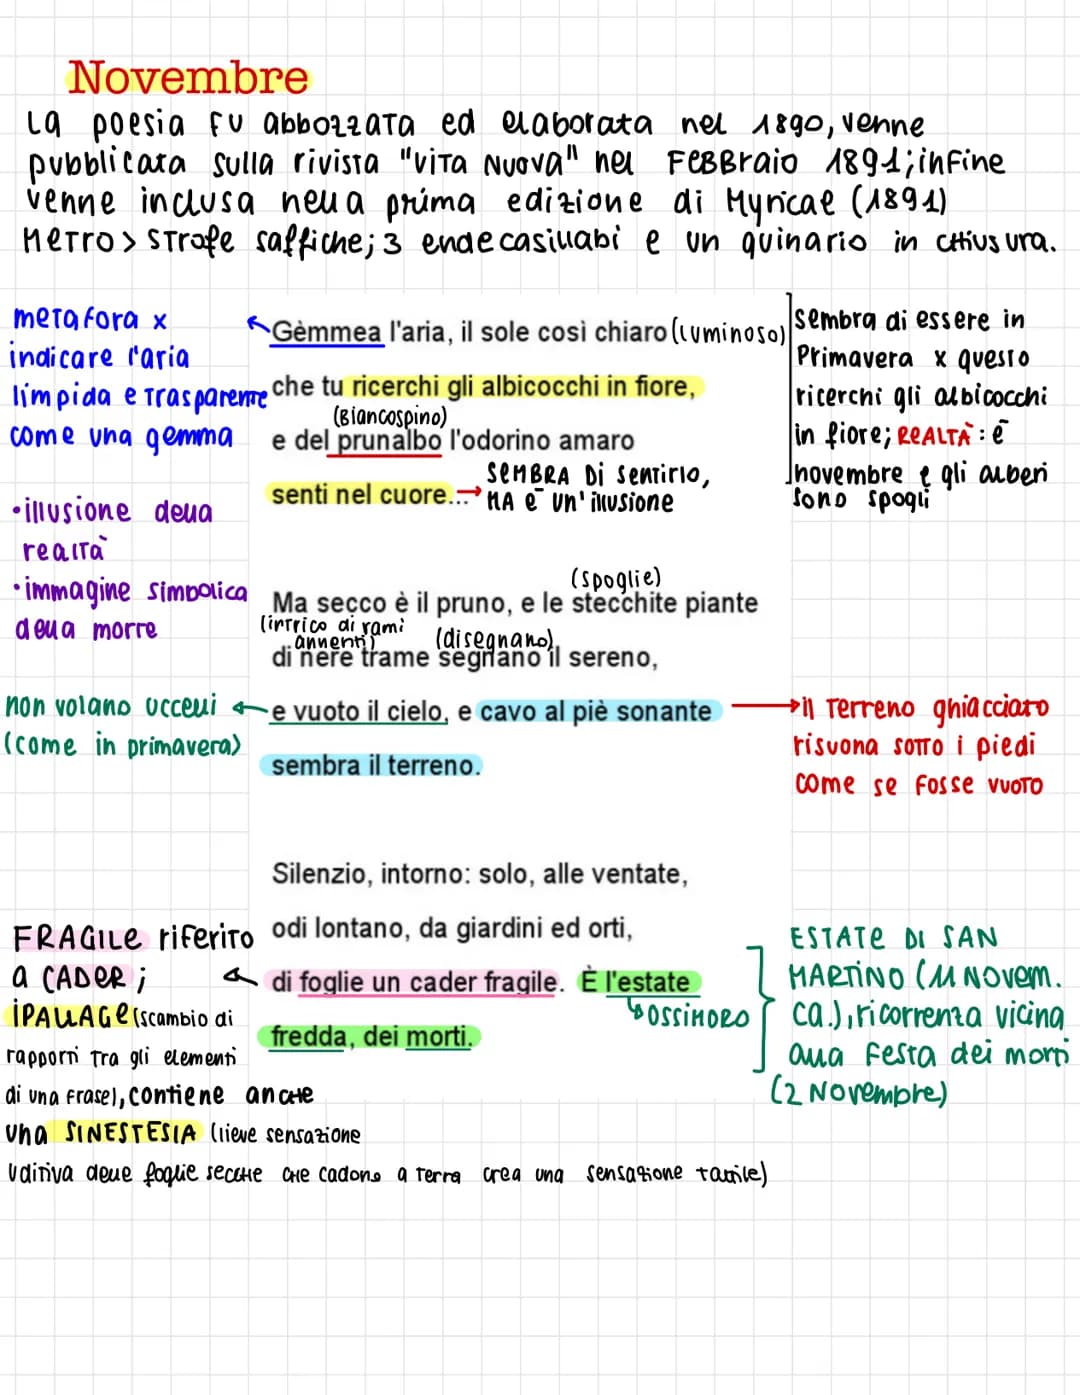 Novembre
La poesia fu abbozzata ed elaborata nel 1890, venne
pubblicata sulla rivista "Vita Nuova" nel Febbraio 1891; infine
venne inclusa nella prima edizione di Myricae (1891)
Metro > strofe saffiche; 3 endecasillabi e un quinario in chiusura.
metafora x
indicare l'aria
limpida e trasparente
come una gemma
Gèmmea l'aria, il sole così chiaro (luminoso)
che tu ricerchi gli albicocchi in fiore,
(Biancospino)
e del prunalbo l'odorino amaro
senti nel cuore...
SEMBRA Di sentirlo,
MA è un'illusione
sembra di essere in
Primavera x questo
ricerchi gli albicocchi
in fiore; REALTÀ: è
novembre e gli alberi
sono spogli
•illusione della
realtà
•immagine simbolica
della morte
(spoglie)
Ma secco è il pruno, e le stecchite piante
(intrico di rami
anneriti) (disegnano)
di nere trame segnano il sereno,
non volano uccelli
(come in primavera)
e vuoto il cielo, e cavo al piè sonante
sembra il terreno.
il terreno ghiacciato
risuona sotto i piedi
come se fosse vuoto
Silenzio, intorno: solo, alle ventate,
odi lontano, da giardini ed orti,
di foglie un cader fragile. È l'estate
fredda, dei morti.
OSSIMORO
FRAGILE riferito
a CADER;
IPALLAGE (scambio di
rapporti tra gli elementi
di una frase), contiene anche
una SINESTESIA (lieve sensazione
uditiva delle foglie secche che cadono a terra crea una sensazione tattile)
ESTATE DI SAN
MARTINO (11 NOVEM.
ca.), ricorrenza vicina
alla festa dei morti
(2 Novembre)